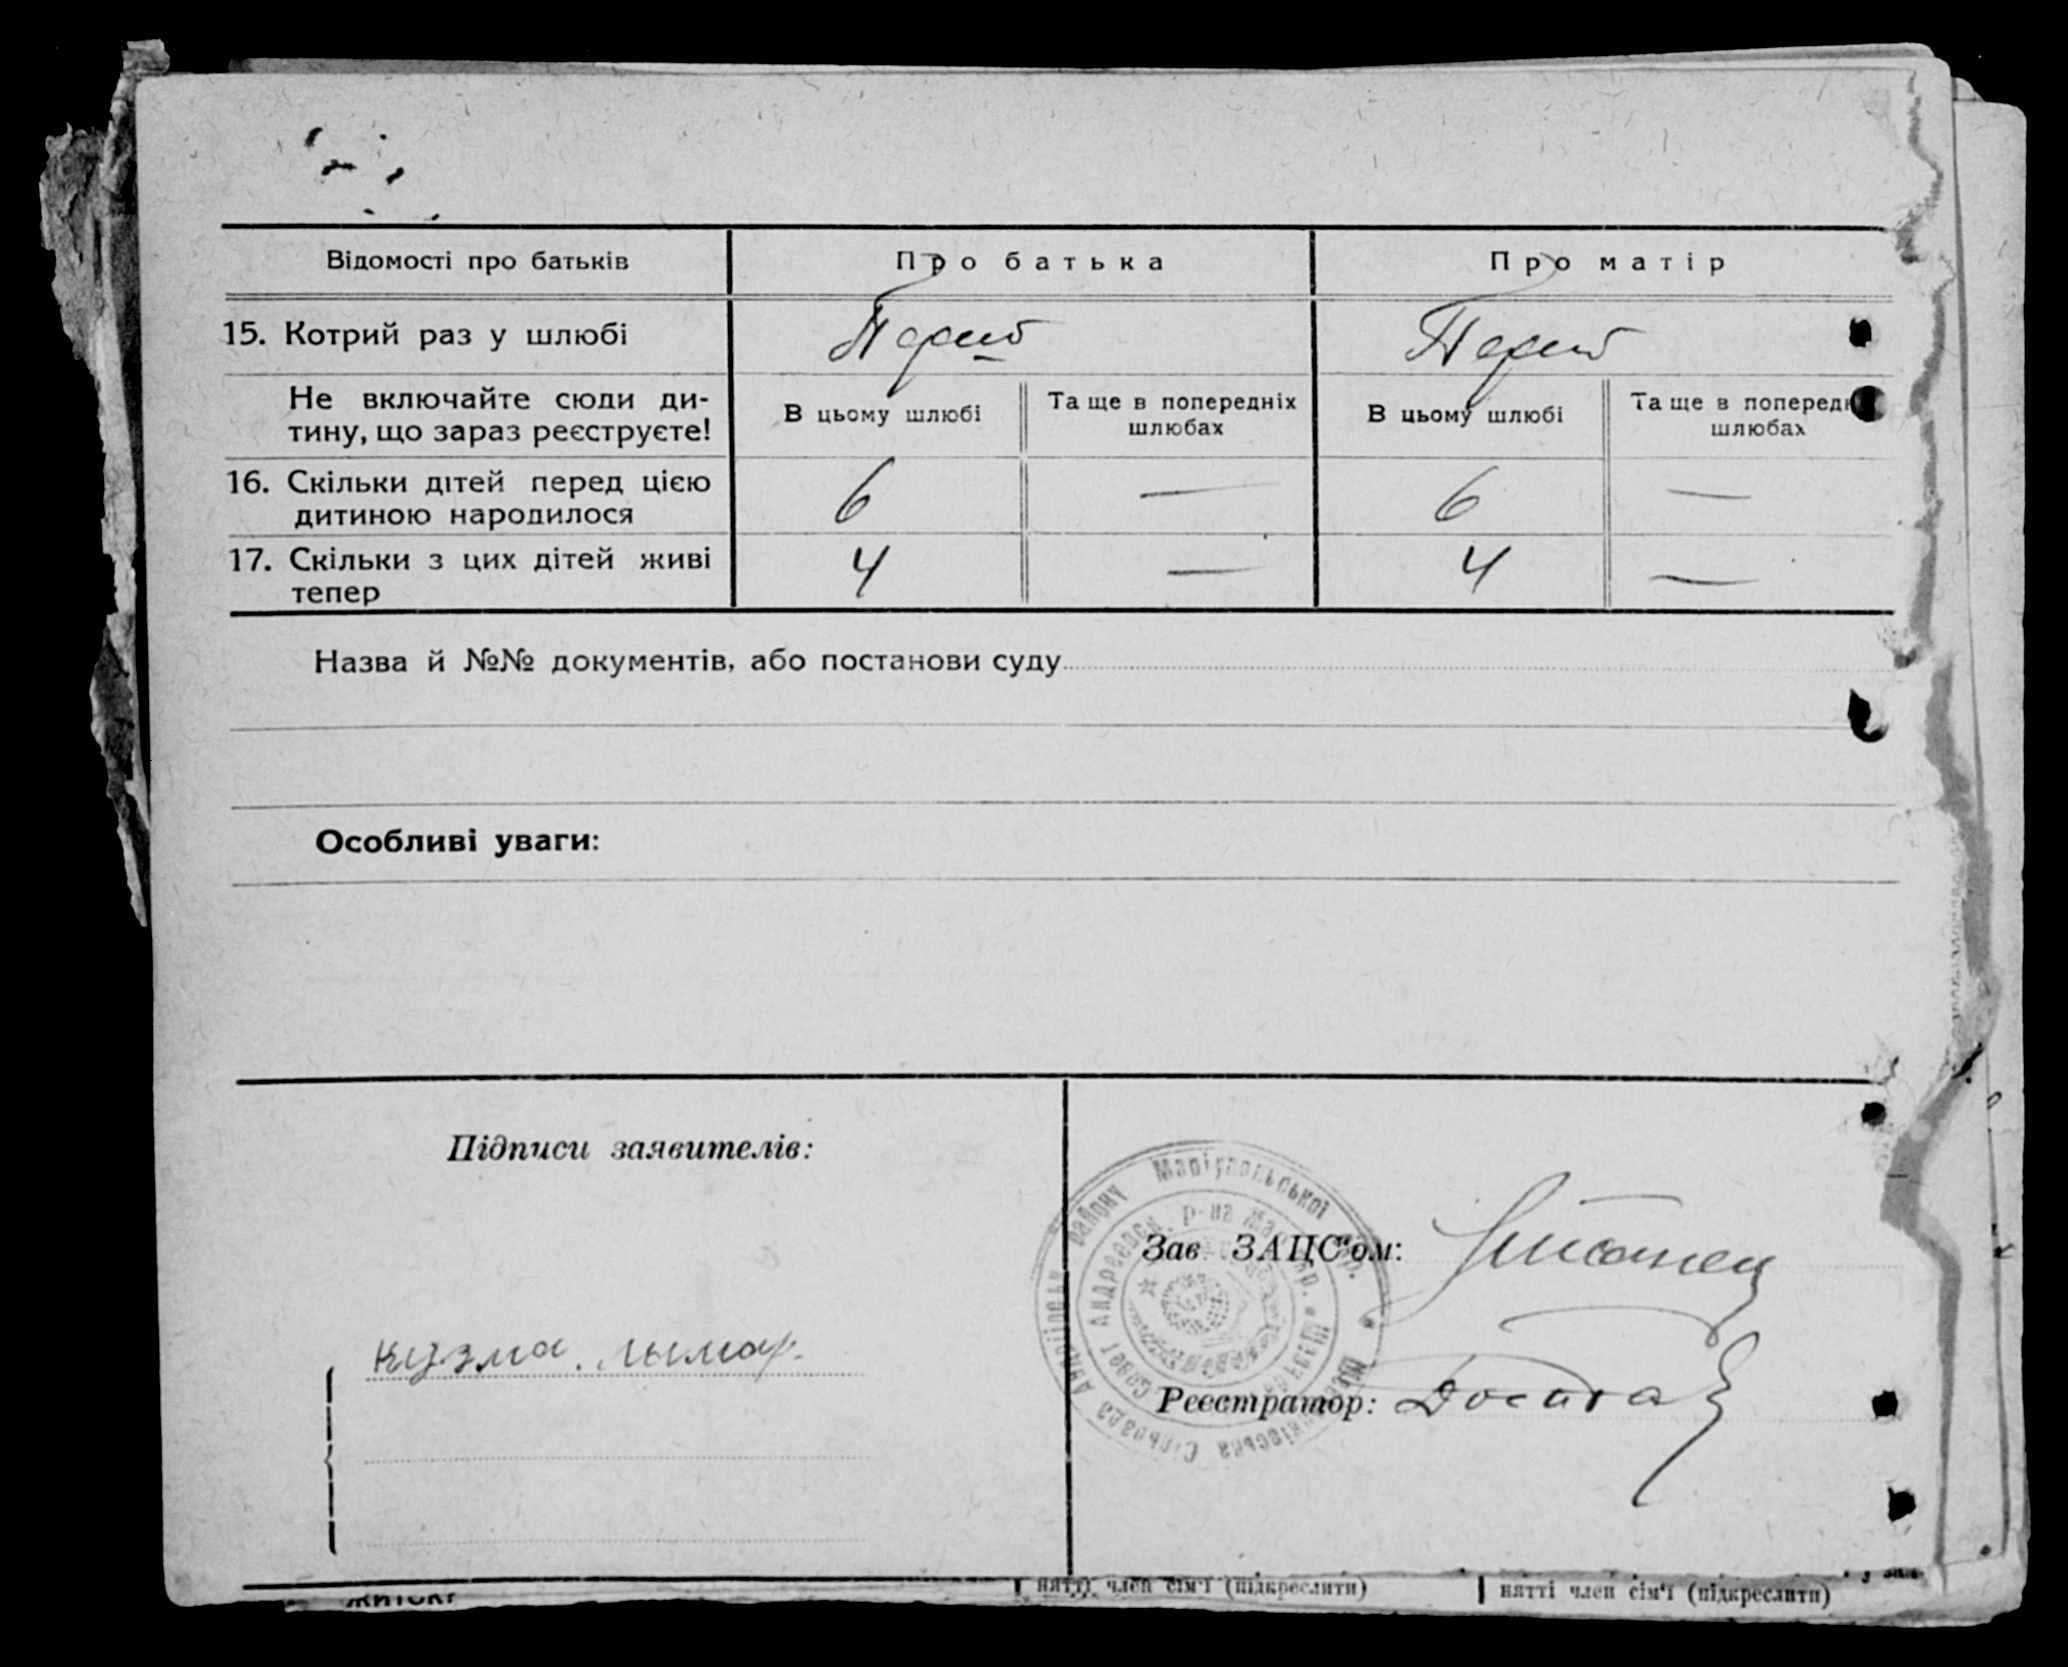 Відомості про батьків
Про батька
Про матір
15. Котрий раз у шлюбі
Не включайте сюди ди-
тину, що зараз реєструєте!
В цьому шлюбі
Та ще в попередніх
шлюбах
В цьому шлюбі
Та ще в поперед
шлюбах
16. Скільки дітей перед цією
дитиною народилося
6
—
6
—
17. Скільки з цих дітей живі
тепер
4
—
4
—
Назва й №№ документів, або постанови суду
Особливі уваги:
Підписи заявителів:
району Маріупольської
Андреевск. р-на
Сільрада
Зав. ЗАЦС'ом:
кузма лымар
Реєстратор:
нятті член сім'ї (підкреслити)
нятті член сім'ї (підкреслити)